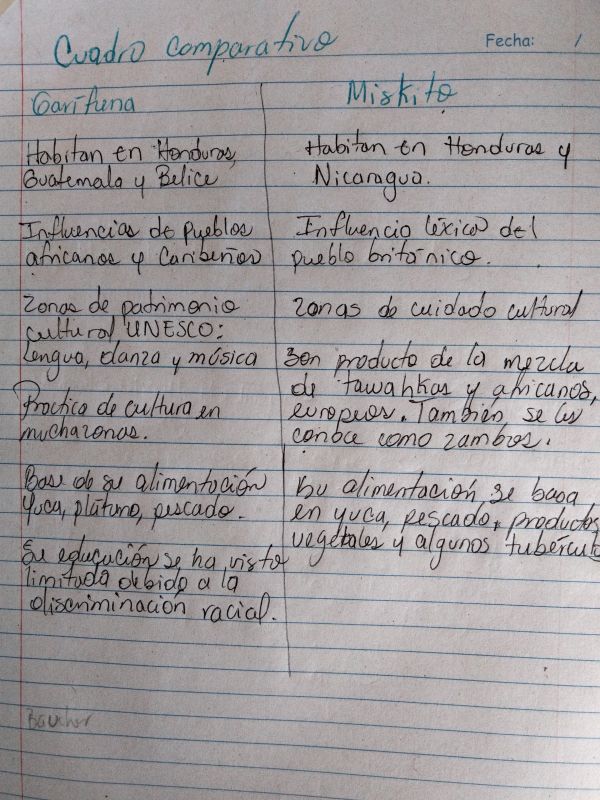 Cuadro comparativo
Fecha: /
Garífuna
Habitan en Honduras,
Guatemala y Belice
Influencias de Pueblos
africanos y Caribeños
Zonas de patrimonio
cultural UNESCO:
Lengua, danza y música
Practica de cultura en
muchazonas.
Base de su alimentación
Yuca, plátano, pescado.
Su educación se ha visto
limitada debido a la
discriminación racial.
Miskito
Habitan en Honduras y
Nicaragua.
Influencia léxica del
pueblo británico.
Zonas de cuidado cultural
Son producto de la mezcla
de tawahkas y africanos,
europeos. También se les
conoce como zambos.
Su alimentación se basa
en yuca, pescado, productos
vegetales y algunos tubércul